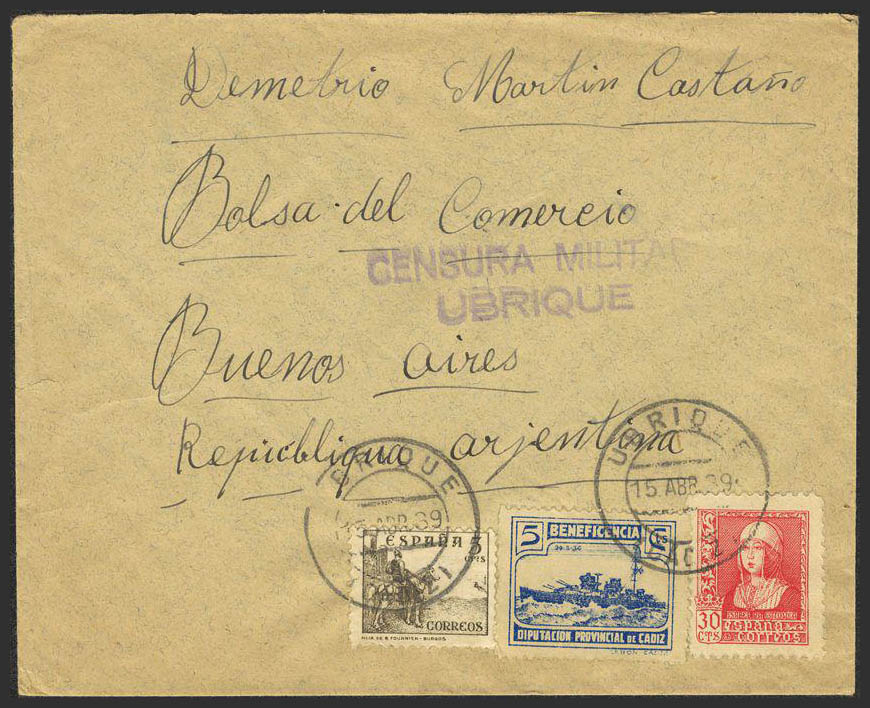 Demetrio Martin Castaño
Bolsa del Comercio
CENSURA MILITAR
UBRIQUE
Buenos aires
Republiqua arjentina
UBRIQUE
15 ABR. 39
UBRIQUE
15 ABR. 39
ESPAÑA 5 CTS
CORREOS
HIJA DE B. FOURNIER - BURGOS
5 BENEFICENCIA Cts
DIPUTACIÓN PROVINCIAL DE CADIZ
ISABEL LA CATOLICA
30 CTS
ESPAÑA
CORREOS